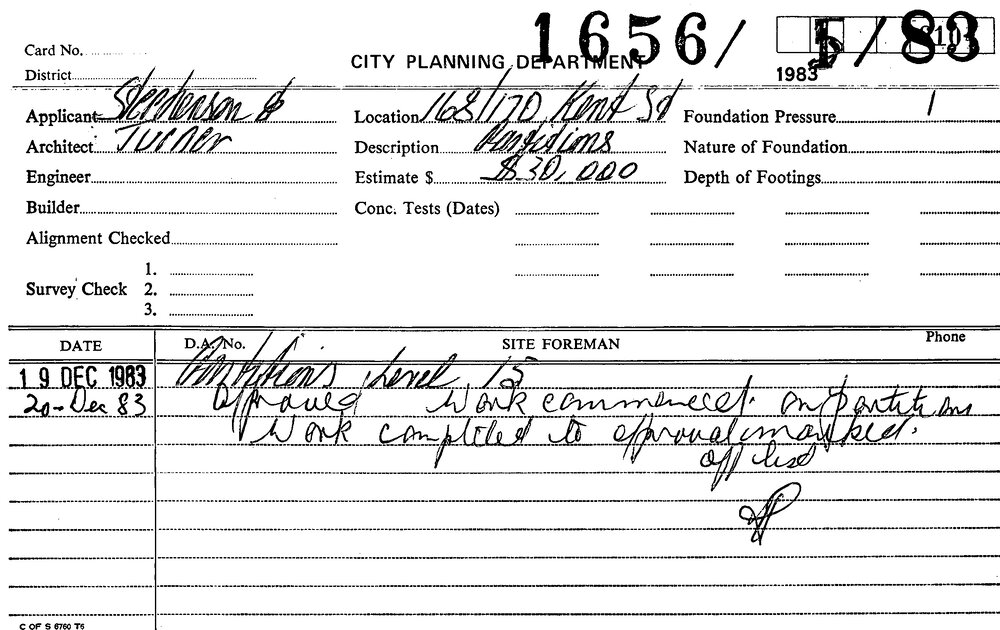 1656/ 5/83
Card No.
CITY PLANNING DEPARTMENT
District
1983
Applicant Stephenson & Location 168/170 Kent St Foundation Pressure 1
Architect Turner Description Partitions Nature of Foundation
Engineer Estimate $ $30,000 Depth of Footings
Builder Conc. Tests (Dates)
Alignment Checked
1.
Survey Check 2.
3.
DATE D.A. No. SITE FOREMAN Phone
19 DEC 1983 Partitions Level 15
20-Dec 83 approved Work commenced. on partitions
Work completed to approval marked.
off list
C OF S 6760 T6